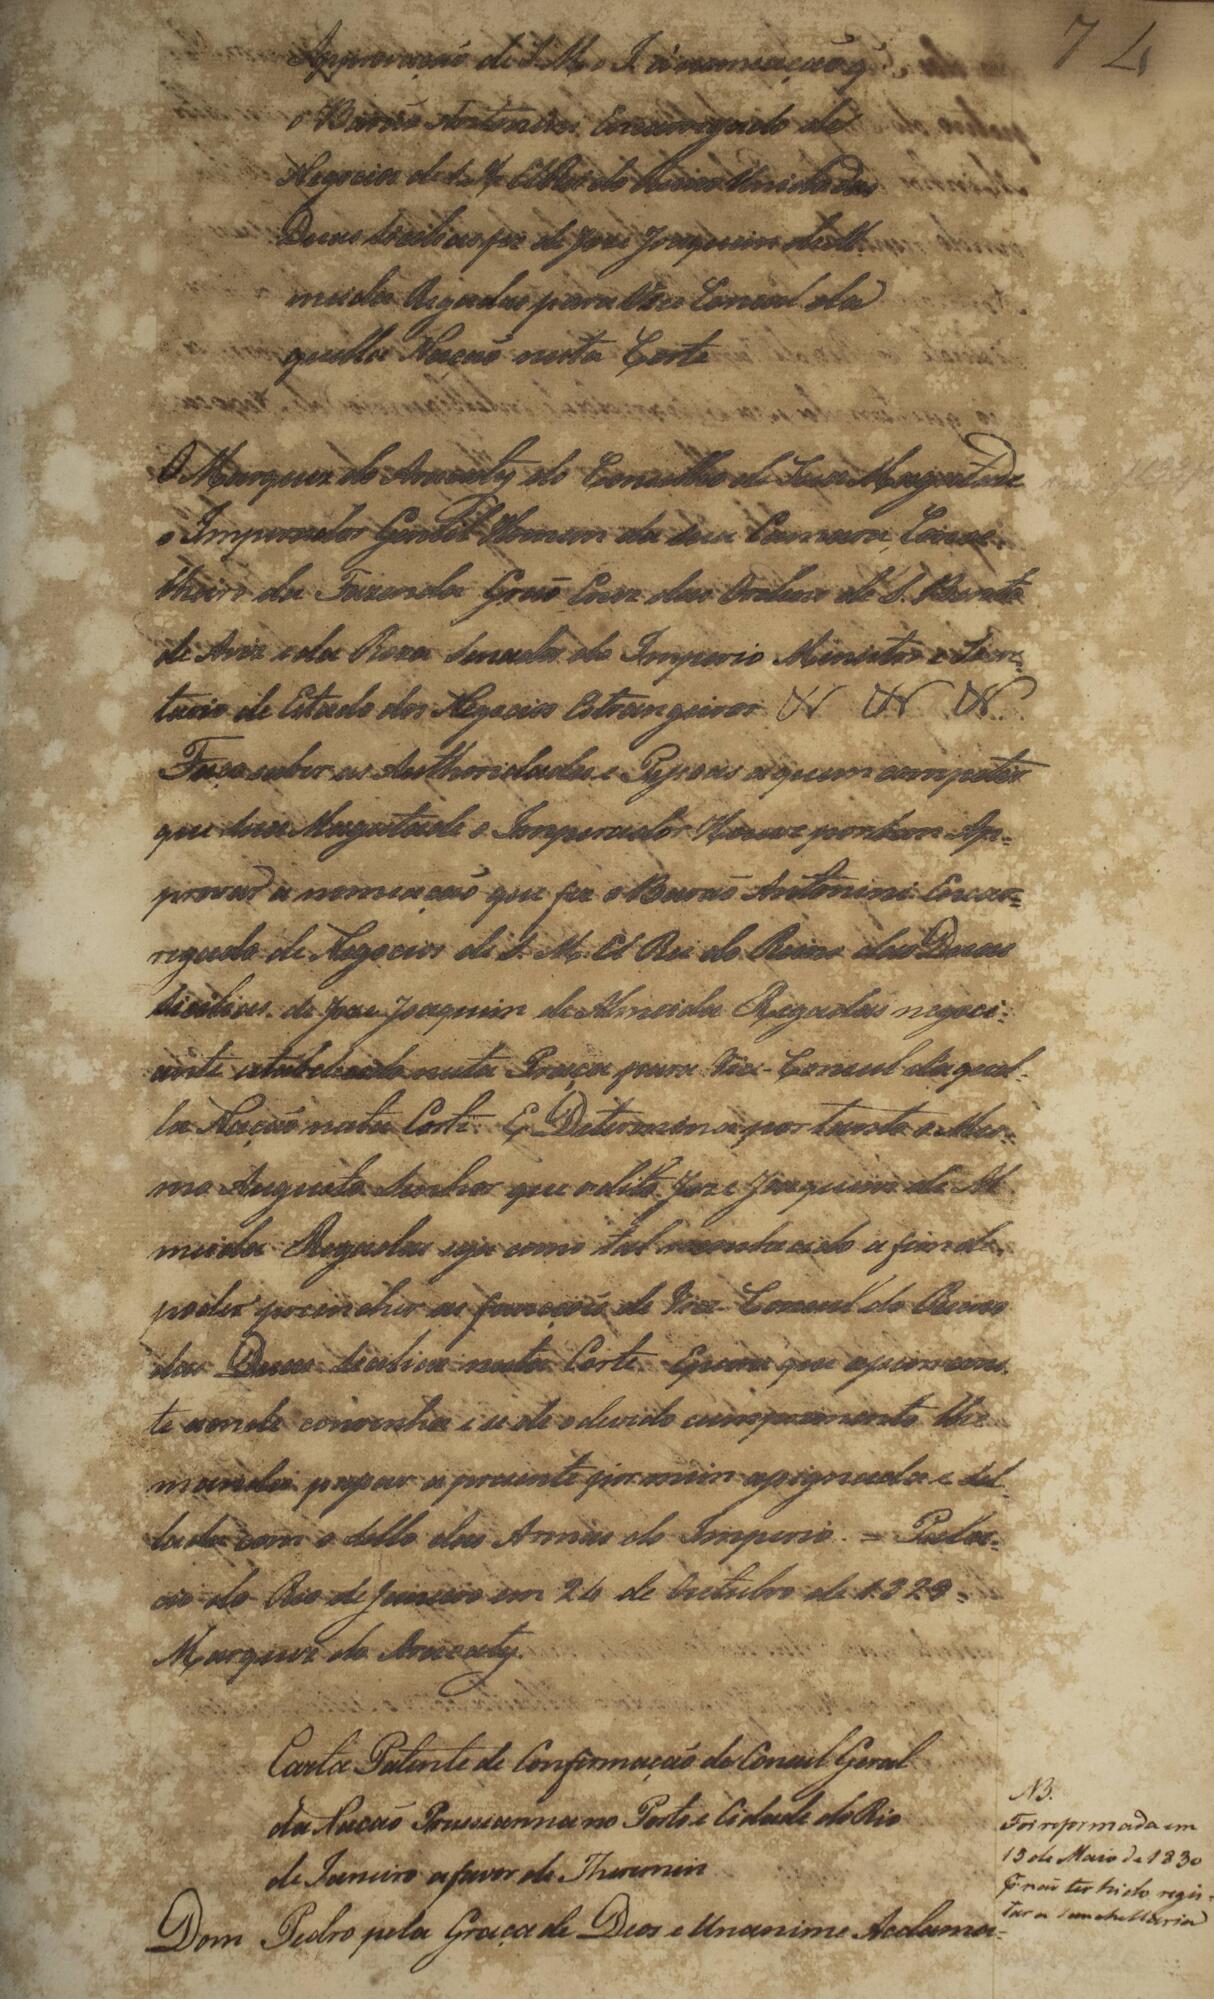 74
Approvação de S. M. o I. á nomeação q
o Barão Antonini Encarregado de
Negocios de S. M. El Rei do Reino Unido das
Duas Sicilias fez de Joze Joaquim de Al
meida Regadas para Vice Consul da
quella Nação nesta Corte
O Marquez do Aracaty do Conselho de Sua Magestade
o Imperador Gentil Homem da sua Camara, Conse-
lheiro da Fazenda Grão Cruz das Ordens de S. Bento
de Aviz e da Roza Senador do Imperio Ministro e Secre-
tario de Estado dos Negocios Estrangeiros
Faço saber as Authoridades e Pessoas a quem competir
que Sua Magestade o Imperador Houve por bem Ap-
provar a nomeação que fez o Barão Antonini Encar-
regado de Negocios de S. M. El Rei do Reino das Duas
Sicilias de Joze Joaquim de Almeida Regadas negoci-
ante estabelecido nesta Praça para Vice-Consul d'aquel-
la Nação nesta Corte. E Determina por tanto o Mes-
mo Augusto Senhor que o dito Joze Joaquim de Al
meida Regadas seja como tal reconhecido a fim de
poder preencher as funcções de Vice-Consul do Reino
das Duas Sicilias nesta Corte. E para que assim cons-
te aonde convenha e se de o devido cumprimento lhe
mandei passar a presente por mim assignada e Sel
lada com o Sello das Armas do Imperio. = Palac-
cio do Rio de Janeiro em 24 de Outubro de 1829 =
Marquez do Aracaty.
Carta Patente de Confirmação de Consul Geral
da Nação Prussianna no Porto e Cidade do Rio
de Janeiro a favor de Theremin
NB.
Foi reformada em
13 de Maio de 1830
p.r não ter hido regis-
tar a Chancellaria
Dom Pedro pela Graça de Deos e Unanime Acclama-